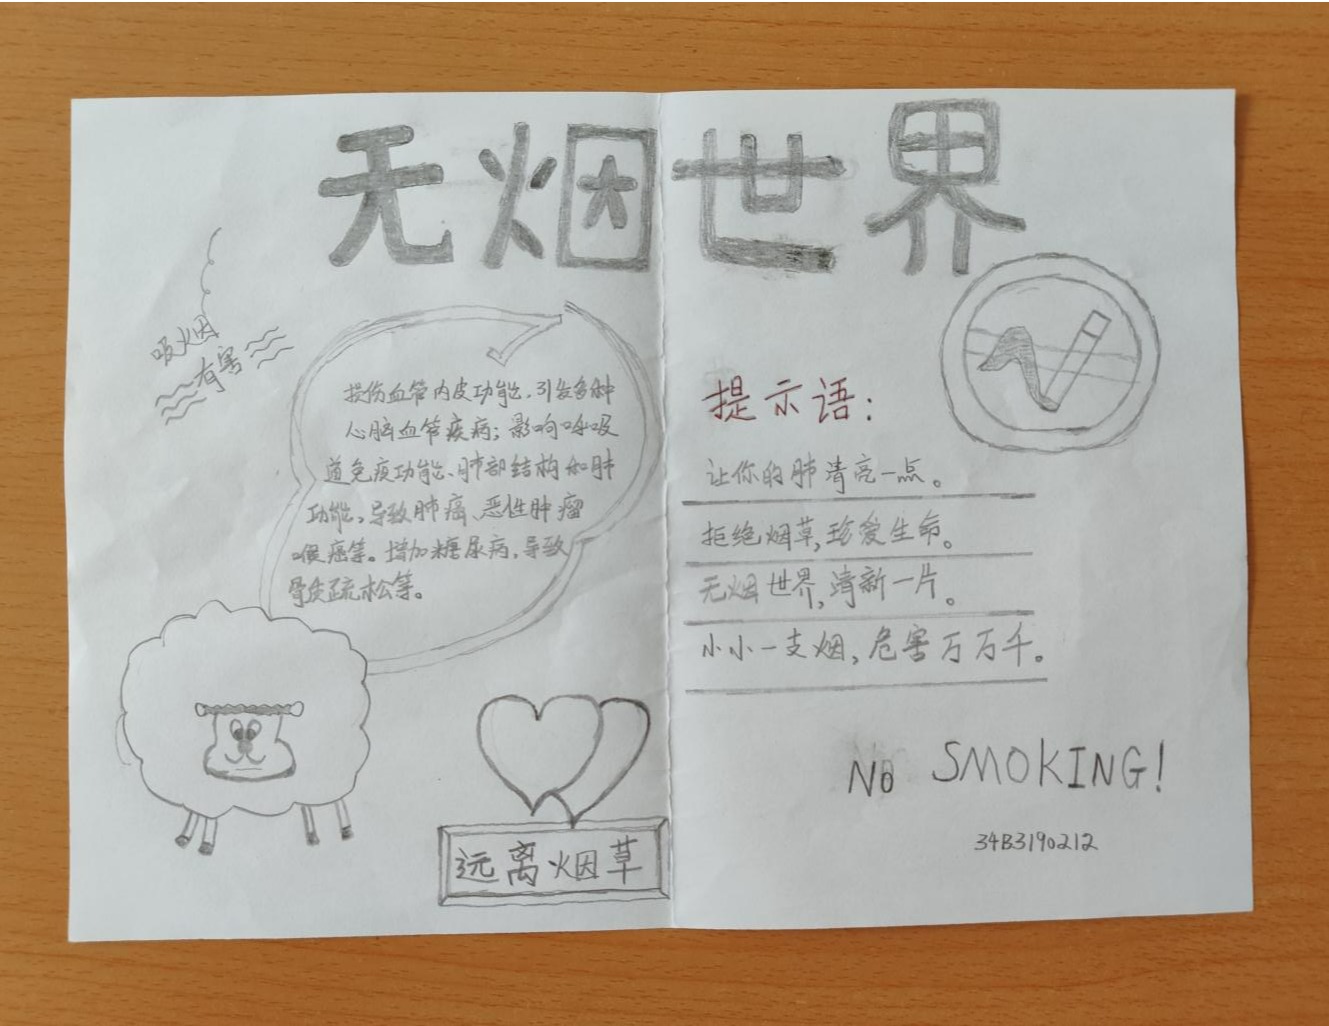 无烟世界
吸烟
有害
损伤血管内皮功能,引发多种
心脑血管疾病;影响呼吸
道免疫功能、肺部结构和肺
功能,导致肺癌、恶性肿瘤
喉癌等。增加糖尿病,导致
骨质疏松等。
远离烟草
提示语:
让你的肺清亮一点。
拒绝烟草,珍爱生命。
无烟世界,清新一片。
小小一支烟,危害万万千。
No SMOKING!
34B3190212